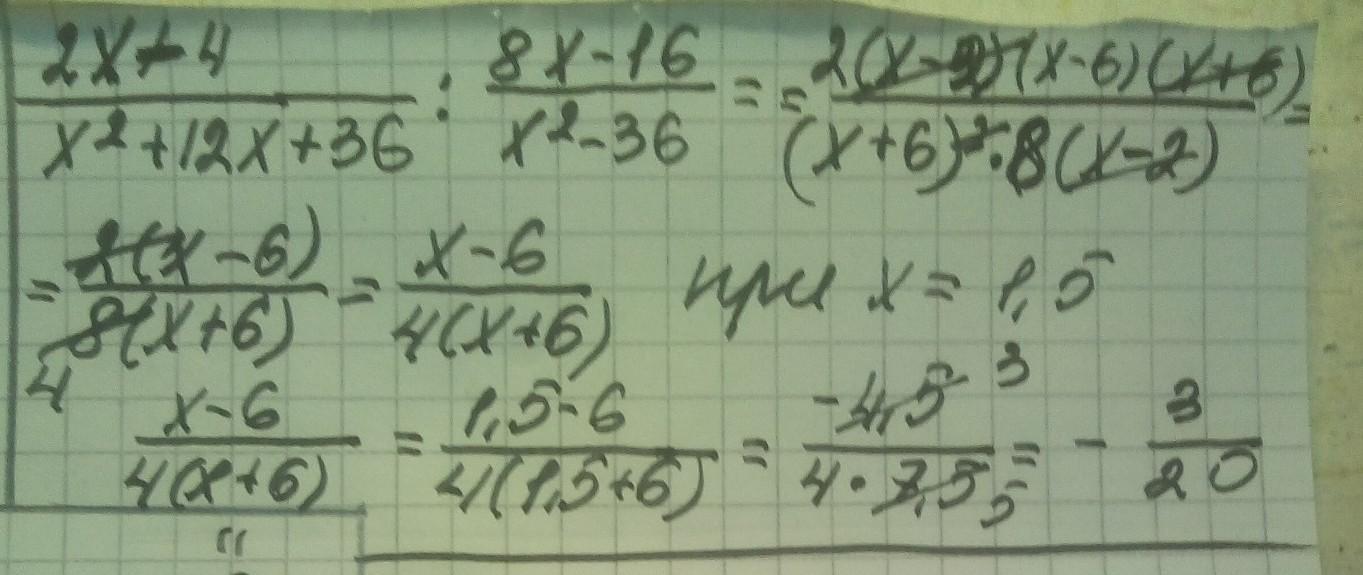 2x-4 / x²+12x+36 : 8x-16 / x²-36 = = 2(x-2)(x-6)(x+6) / (x+6)²·8(x-2) =
= 2(x-6) / 8(x+6) = x-6 / 4(x+6) при x = 1,5
4
x-6 / 4(x+6) = 1,5-6 / 4(1,5+6) = -4,5 3 / 4·7,5 5 = - 3 / 20